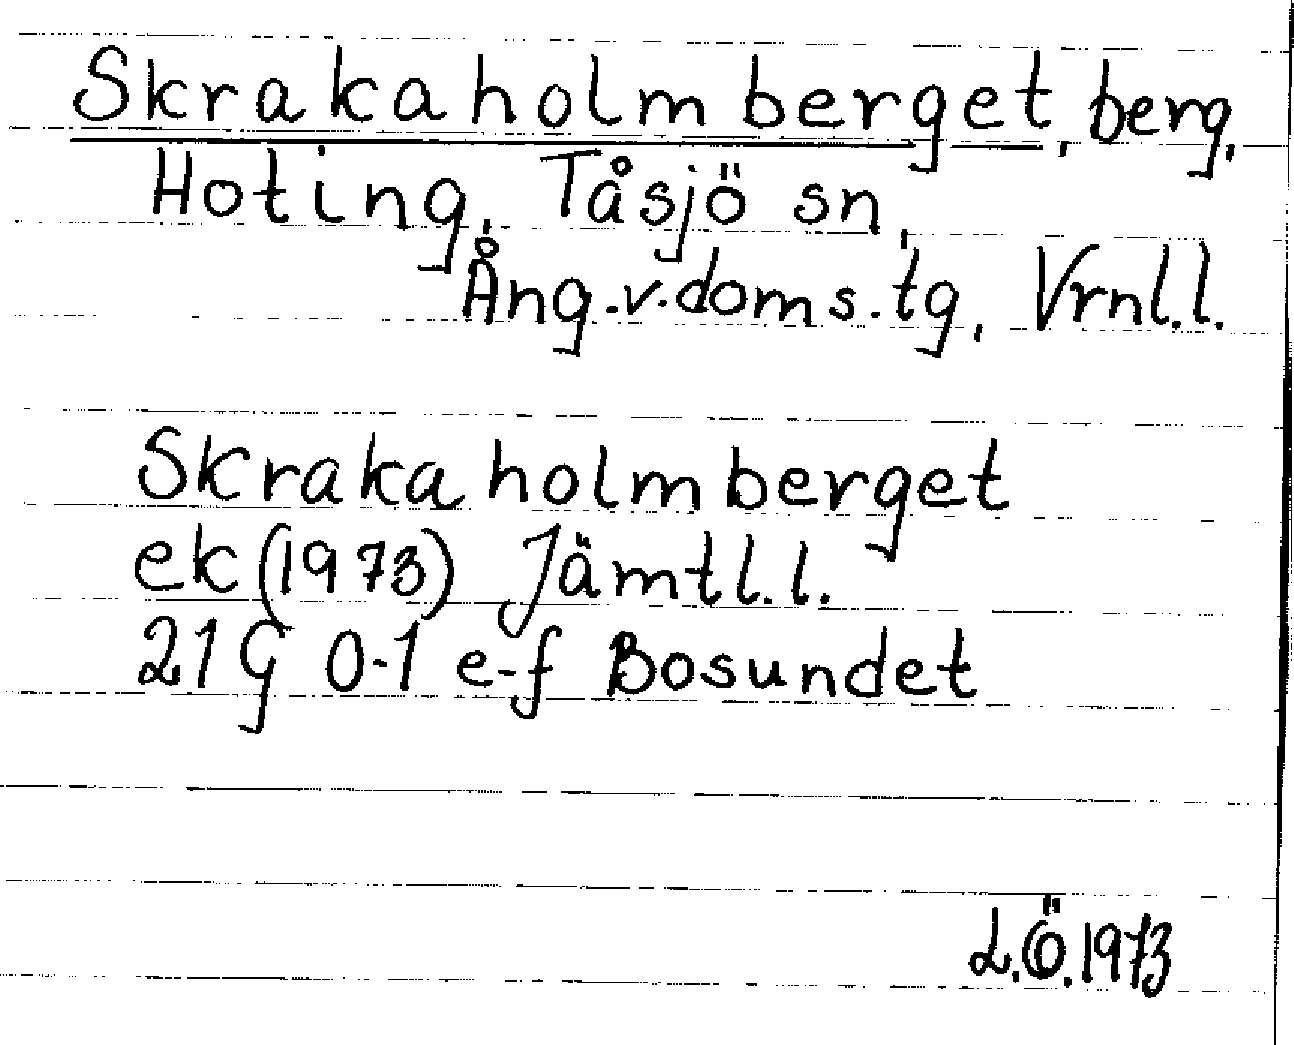 Skrakaholmberget, berg,
Hoting, Tåsjö sn,
Ång.v.doms.tg, Vrnl.l.
Skrakaholmberget
ek (1973) Jämtl.l.
21G 0-1 e-f Bosundet
L.Ö.1973